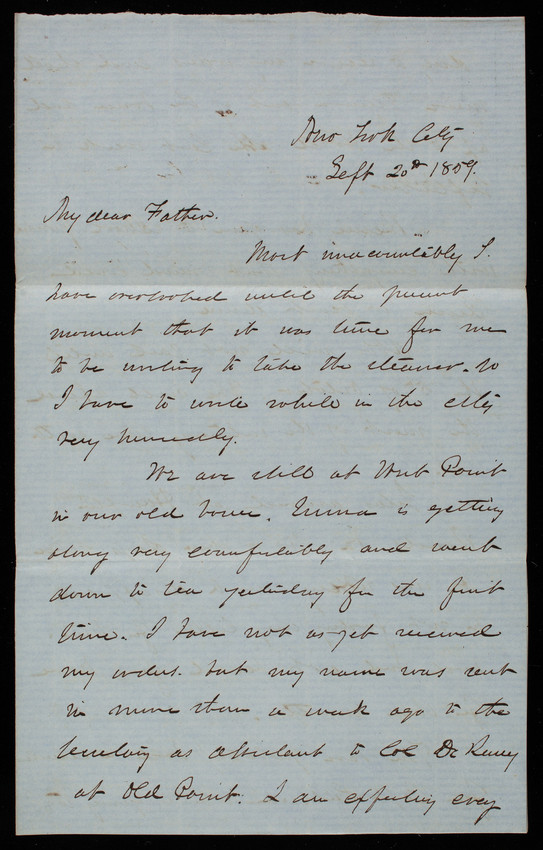 New York City
Sept 20th 1859.
My dear Father.
Most unaccountably I
have overlooked until the present
moment that it was time for me
to be writing to take the steamer. So
I have to write while in the city
very hurriedly.
We are still at West Point
in our old house. Emma is getting
along very comfortably and went
down to tea yesterday for the first
time. I have not as yet received
my orders. but my name was sent
in more than a week ago to the
Secretary as assistant to Col De Russy
at Old Point. I am expecting every